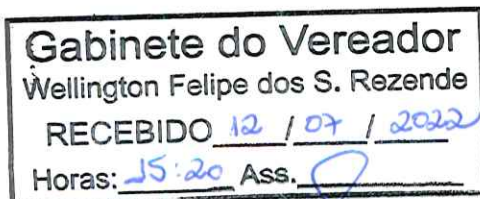 Gabinete do Vereador
Wellington Felipe dos S. Rezende
RECEBIDO 12 / 07 / 2022
Horas: 15:20 Ass.